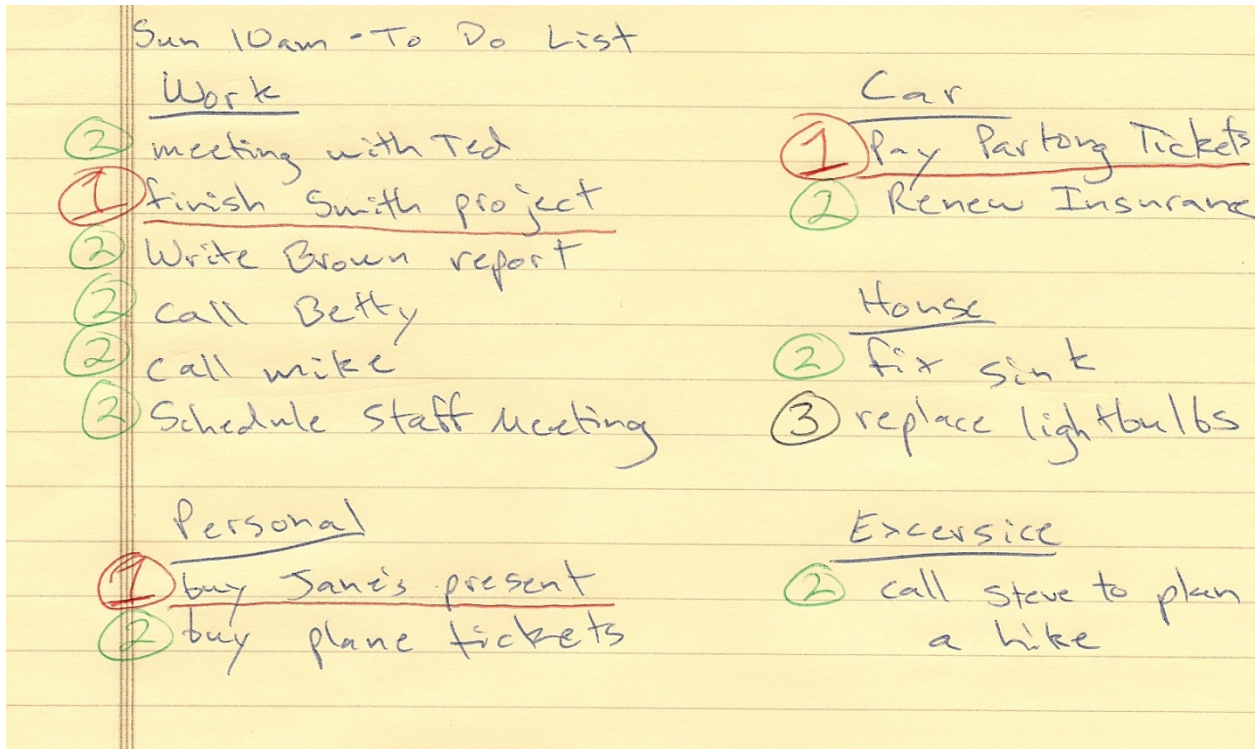 Sun 10am - To Do List
Work
2 meeting with Ted
1 finish Smith project
2 Write Brown report
2 call Betty
2 call mike
2 Schedule Staff Meeting
Personal
1 buy Jane's present
2 buy plane tickets
Car
1 Pay Parking Tickets
2 Renew Insurance
House
2 fix sink
3 replace lightbulbs
Excersice
2 call Steve to plan
a hike